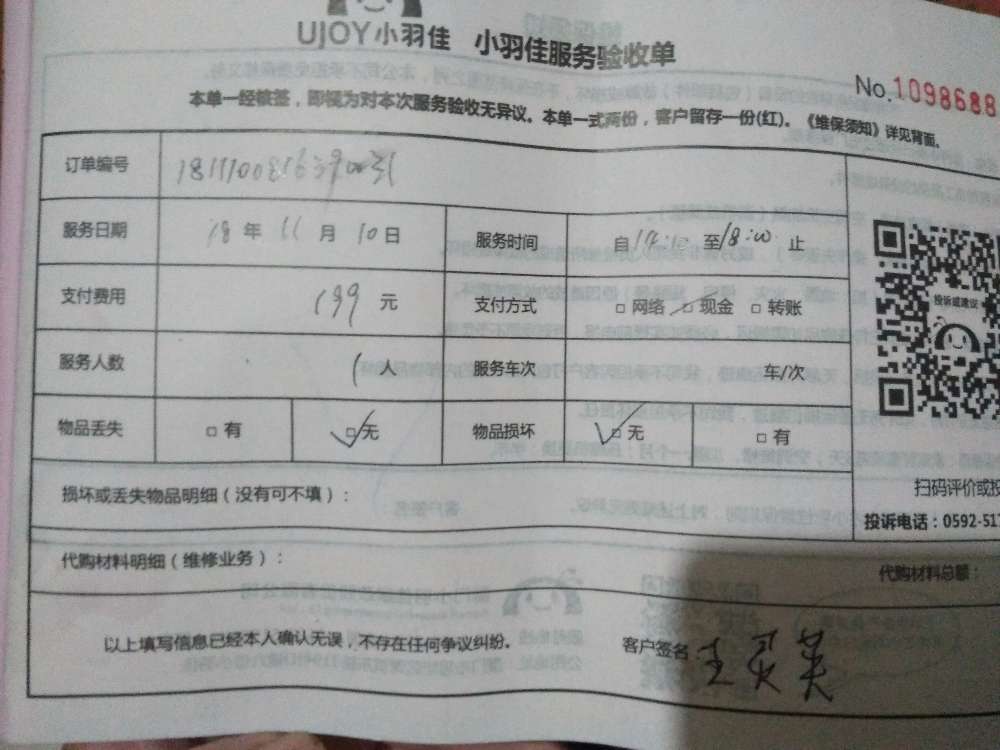 UJOY小羽佳 小羽佳服务验收单
No.1098688
本单一经核签，即视为对本次服务验收无异议。本单一式两份，客户留存一份(红)。《维保须知》详见背面。
订单编号
服务日期 18 年 11 月 10 日 服务时间 自 至18:00 止
支付费用 199 元 支付方式 □ 网络 □ 现金 □ 转账
投诉或建议
服务人数 1 人 服务车次 车/次
物品丢失 □ 有 □ 无 物品损坏 □ 无 □ 有
扫码评价或投
损坏或丢失物品明细（没有可不填）：
投诉电话：0592-517
代购材料明细（维修业务）：
代购材料总额：
以上填写信息已经本人确认无误，不存在任何争议纠纷。 客户签名：王灵美